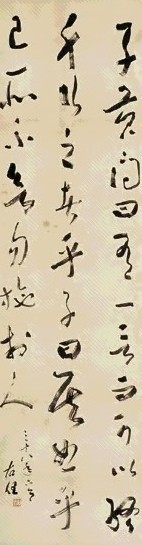 子贡问曰有一言而可以终
身行之者乎子曰其恕乎
己所不欲勿施于人